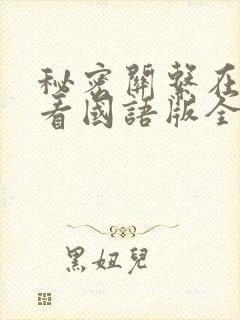 秘密關繫在
看國語版全
黑妞兒